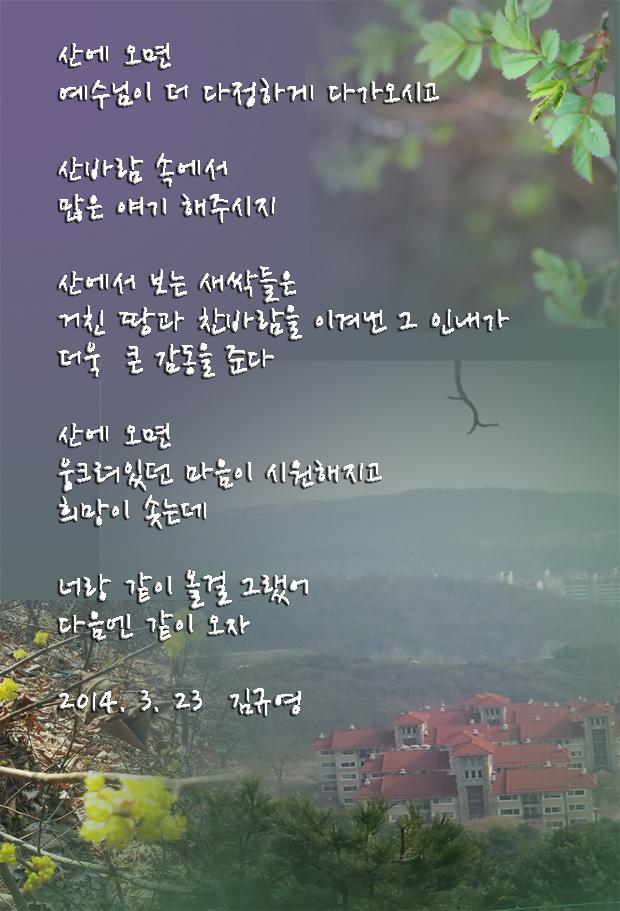 산에 오면
예수님이 더 다정하게 다가오시고
산바람 속에서
많은 얘기 해주시지
산에서 보는 새싹들은
거친 땅과 찬바람을 이겨낸 그 인내가
더욱 큰 감동을 준다
산에 오면
웅크려있던 마음이 시원해지고
희망이 솟는데
너랑 같이 올걸 그랬어
다음엔 같이 오자
2014. 3. 23 김규영